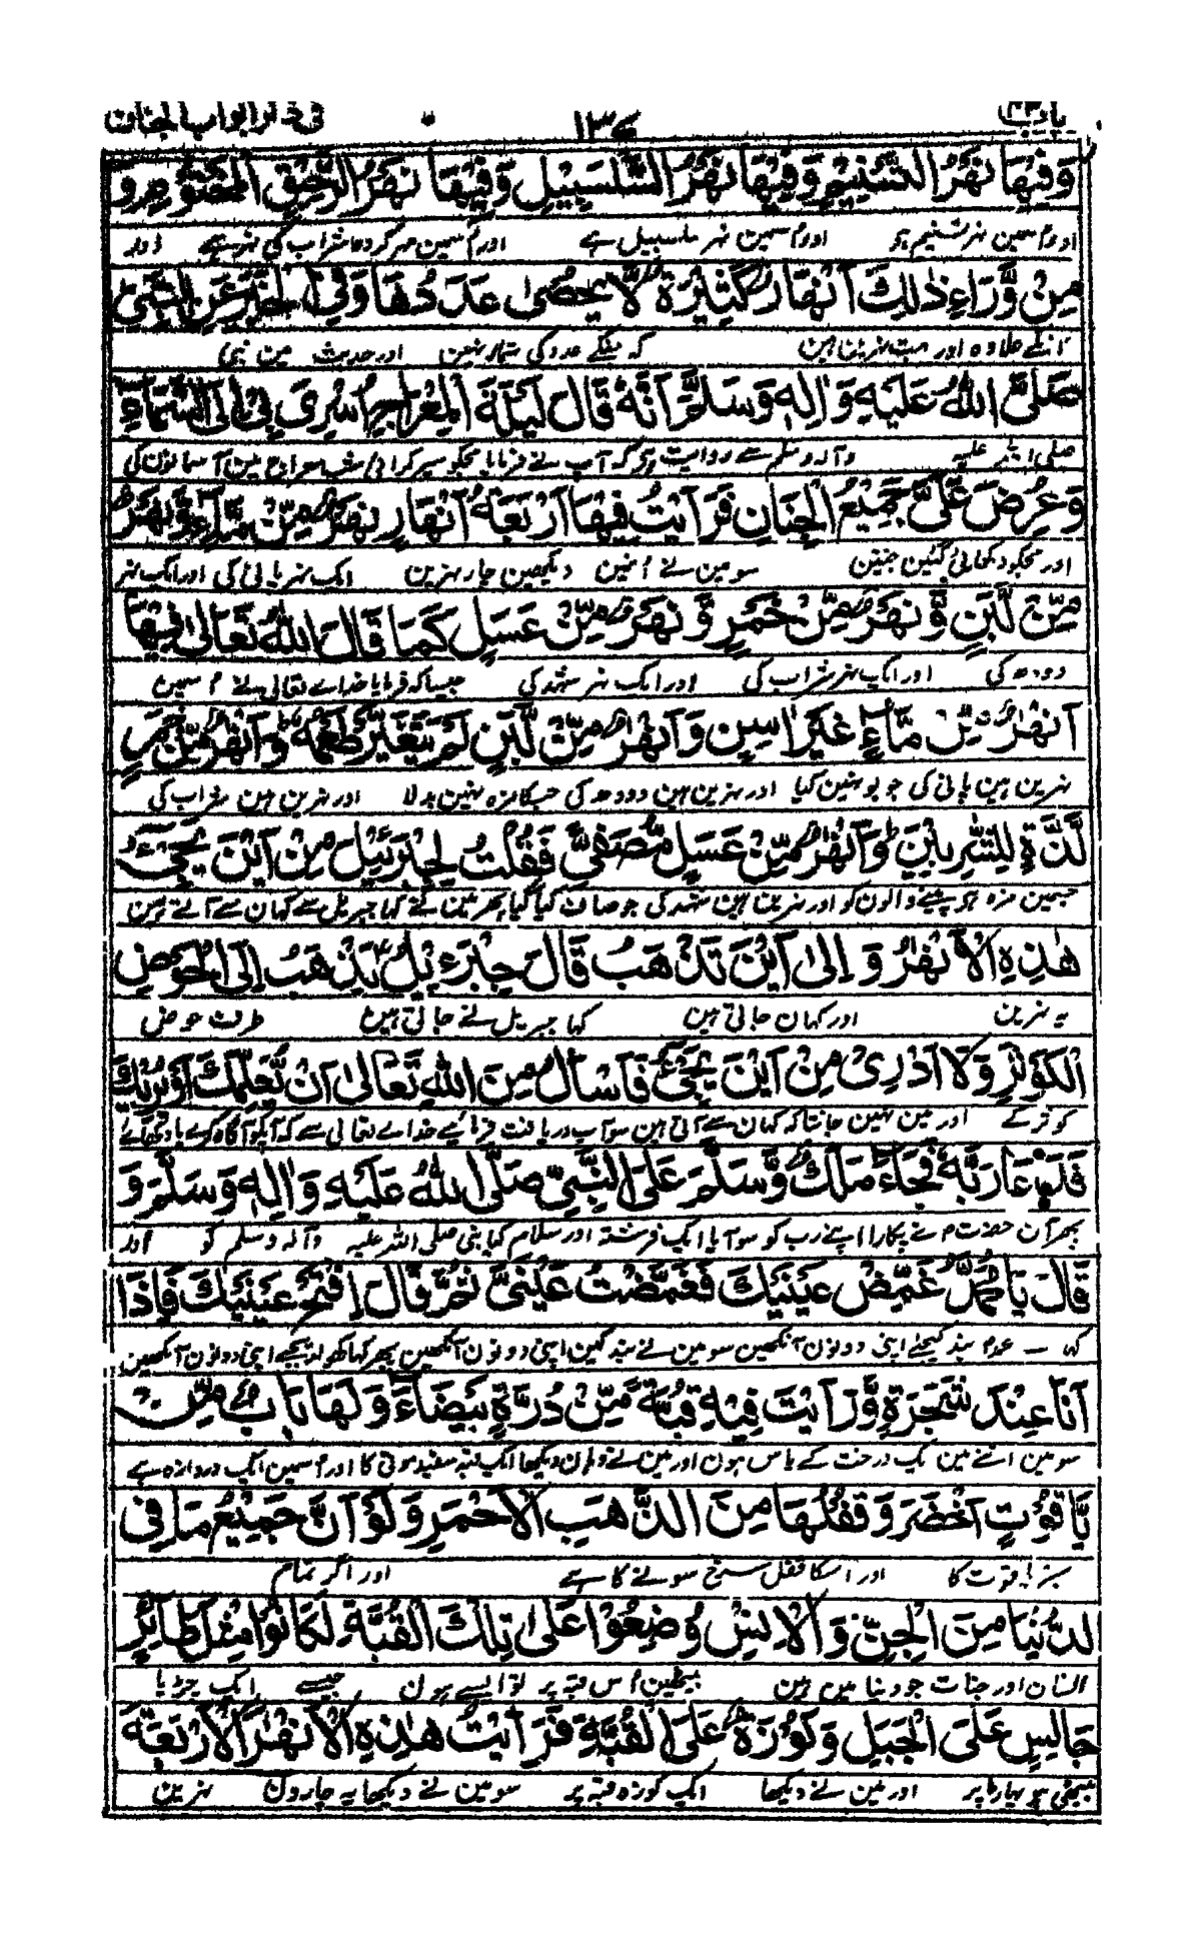 باب ١٣٦ فى ذكر ابواب الجنان
وَفِيْهَا نَهَرُ التَّسْنِيْمِ وَفِيْهَا نَهَرُ السَّلْسَبِيْلِ وَفِيْهَا نَهَرُ الرَّحِيْقِ الْمَخْتُوْمِ وَ
اور اسمین نہر تسنیم ہو اور اسمین نہر سلسبیل ہے اور اسمین مہر کردہ شراب کی نہر ہے اور
مِنْ وَّرَاءِ ذٰلِكَ اَنْهَارٌ كَثِيْرَةٌ لَّا يُحْصٰى عَدَدُهَا وَفِى الْخَبَرِ عَنِ النَّبِىِّ
انکے علاوہ اور بہت نہرین ہین کہ جنکے عدد کی شمار نہین اور حدیث مین نبی
صَلَّى اللهُ عَلَيْهِ وَاٰلِهٖ وَسَلَّمَ اَنَّهٗ قَالَ لَيْلَةَ الْمِعْرَاجِ اُسْرِىَ بِىْ اِلَى السَّمَاءِ
صلی اللہ علیہ وآلہ وسلم سے روایت ہو کہ آپ نے فرمایا مجکو سیر کرائی شب معراج مین آسمانون کی
وَعُرِضَ عَلَىَّ جَمِيْعُ الْجِنَانِ فَرَاَيْتُ فِيْهَا اَرْبَعَةَ اَنْهَارٍ نَهَرٌ مِّنْ مَّاءٍ وَّنَهَرٌ
اور مجکو دکھائی گئین جنتین سو مین نے انمین دیکھین چار نہرین ایک نہر پانی کی اور ایک نہر
مِّنْ لَّبَنٍ وَّنَهَرٌ مِّنْ خَمْرٍ وَّنَهَرٌ مِّنْ عَسَلٍ كَمَا قَالَ اللهُ تَعَالٰى فِيْهَا
دودھ کی اور ایک نہر شراب کی اور ایک نہر شہد کی جیسا کہ فرمایا خداے تعالی نے اسمین
اَنْهٰرٌ مِّنْ مَّاءٍ غَيْرِ اٰسِنٍ وَاَنْهٰرٌ مِّنْ لَّبَنٍ لَّمْ يَتَغَيَّرْ طَعْمُهٗ وَاَنْهٰرٌ مِّنْ خَمْرٍ
نہرین ہین پانی کی جو بو نہین کیا اور نہرین ہین دودھ کی جسکا مزہ نہین بدلا اور نہرین ہین شراب کی
لَّذَّةٍ لِّلشّٰرِبِيْنَ وَاَنْهٰرٌ مِّنْ عَسَلٍ مُّصَفًّى فَقُلْتُ لِجِبْرَئِيْلَ مِنْ اَيْنَ يَجِىْءُ
جسمین مزہ ہو پینے والون کو اور نہرین ہین شہد کی جو صاف کیا گیا پھر مین نے کہا جبریل سے کہان سے آتے ہین
هٰذِهِ الْاَنْهٰرُ وَاِلٰى اَيْنَ تَذْهَبُ قَالَ جِبْرَءِيْلُ يَذْهَبُ اِلَى الْحَوْضِ
یہ نہرین اور کہان جاتی ہین کہا جبریل نے جاتی ہین طرف حوض
الْكَوْثَرِ وَلَا اَدْرِىْ مِنْ اَيْنَ يَجِىْءُ فَاسْاَلْ مِنَ اللهِ تَعَالٰى اَنْ يُّعَلِّمَكَ اَوْ يُرِيَكَ
کوثر کے اور مین نہین جانتا کہ کہان سے آتی ہین سو آپ دریافت فرمائیے خداے تعالی سے کہ آپکو آگاہ کرے یا دکھائے
فَدَعَا رَبَّهٗ فَجَاءَ مَلَكٌ وَّسَلَّمَ عَلَى النَّبِىِّ صَلَّى اللهُ عَلَيْهِ وَاٰلِهٖ وَسَلَّمَ وَ
پھر آن حضرت ص نے پکارا اپنے رب کو سو آیا ایک فرشتہ اور سلام کیا نبی صلی اللہ علیہ وآلہ وسلم کو اور
قَالَ يَا مُحَمَّدُ غَمِّضْ عَيْنَيْكَ فَغَمَّضْتُ عَيْنَىَّ ثُمَّ قَالَ اِفْتَحْ عَيْنَيْكَ فَاِذَا
کہا بند کیجئے اپنی دونون آنکھین سو مین نے بند کین اپنی دونون آنکھین پھر کہا کھولدیجئے اپنی دونون آنکھین
اَنَا عِنْدَ شَجَرَةٍ وَّرَاَيْتُ فِيْهِ قُبَّةً مِّنْ دُرَّةٍ بَيْضَاءَ وَلَهَا بَابٌ مِّنْ
سو مین اتنے مین ایک درخت کے پاس ہون اور مین نے وہان دیکھا ایک قبہ سفید موتی کا اور اسمین ایک دروازہ ہے
يَّاقُوْتٍ اَخْضَرَ وَقُفْلُهَا مِنَ الذَّهَبِ الْاَحْمَرِ وَلَوْ اَنَّ جَمِيْعَ مَا فِى
سبز یاقوت کا اور اسکا قفل سرخ سونے کا ہے اور اگر تمام
لدُّنْيَا مِنَ الْجِنِّ وَالْاِنْسِ وُضِعُوْا عَلٰى تِلْكَ الْقُبَّةِ لَكَانُوْا مِثْلَ طَائِرٍ
انسان اور جنات جو دنیا مین ہین بیٹھین اس قبہ پر تو ایسے ہون جیسے ایک چڑیا
جَالِسٍ عَلَى الْجَبَلِ وَكُوْزَةٌ عَلَى الْقُبَّةِ فَرَاَيْتُ هٰذِهِ الْاَنْهٰرَ الْاَرْبَعَةَ
بیٹھی ہو پہاڑ پر اور مین نے دیکھا ایک کوزہ قبہ پر سو مین نے دیکھا یہ چارون نہرین